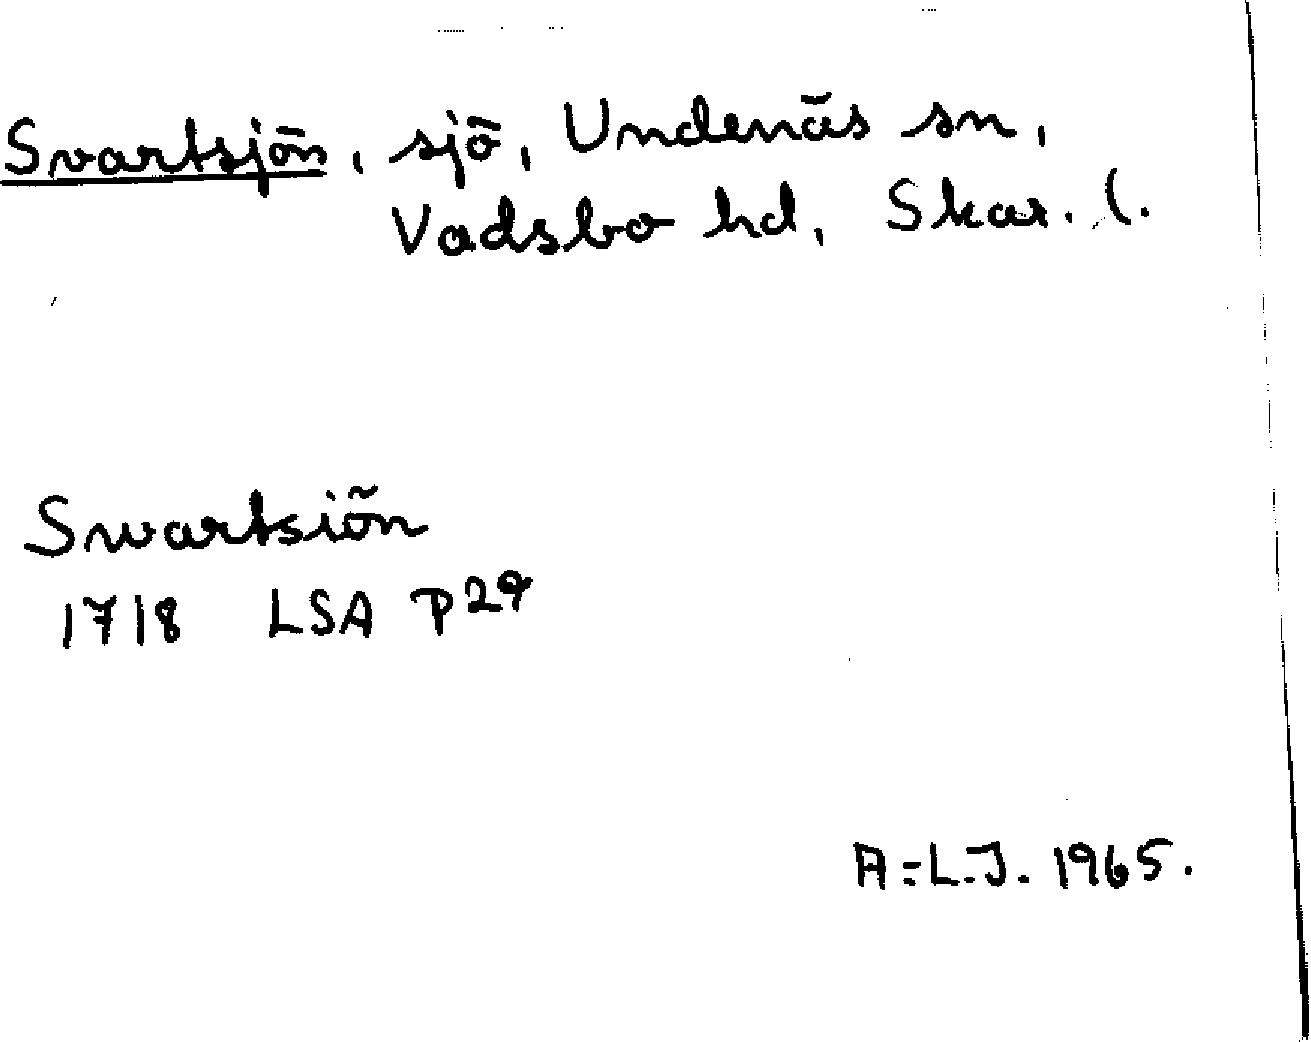 Svartsjön, sjö, Undenäs sn,
Vadsbo hd, Skar. l.
Swartsiön
1718 LSA P29
A.-L.J. 1965.